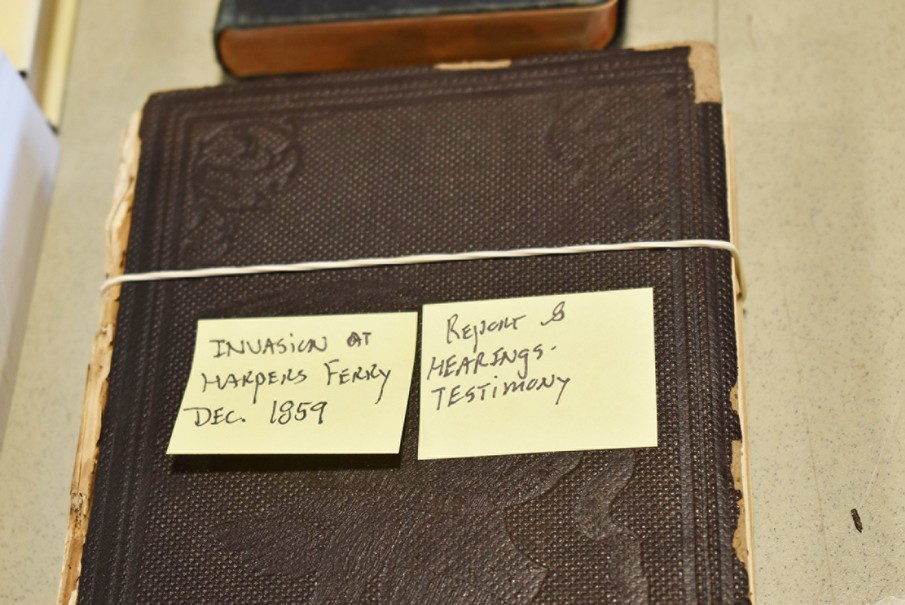 INVASION AT
HARPERS FERRY
DEC. 1859
REPORT &
HEARINGS-
TESTIMONY